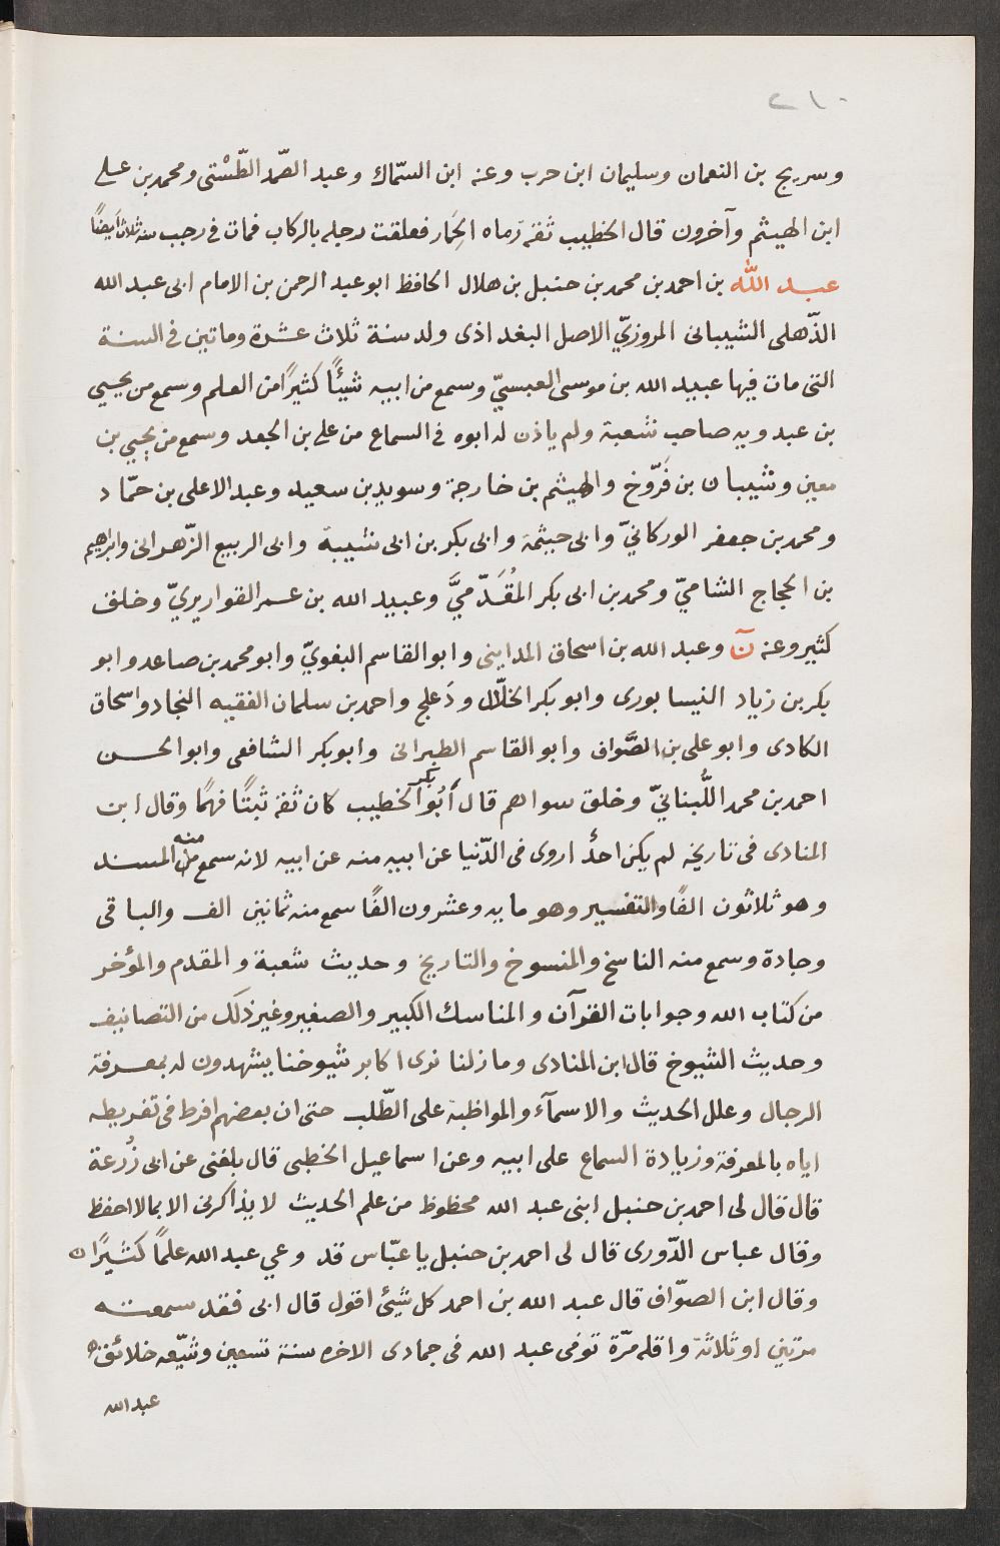 ٢١٠
وسريج بن النعمان وسليمان ابن حرب وعنه ابن السمّاك وعبد الصّمد الطّسْتى ومحمد بن على
ابن الهيثم وآخرون قال الخطيب ثقه رَماه الحِمار فعلقت رجله بالركاب فمات فى رجب سنه ثلاث ايضًا
عبد اللّه بن احمد بن محمد بن حنبل بن هلال الحافظ ابو عبد الرحمن بن الامام ابى عبد الله
الذّهلى الشيبانى المروزيّ الاصل البغداذى ولد سنة ثلاث عشرة وماتين فى السنة
التى مات فيها عبيد الله بن موسى العبسيّ وسمع من ابيه شيئًا كثيرًا من العلم وسمع من يحيي
بن عبدويه صاحب شعبة ولم ياذن له ابوه فى السماع من على بن الجعد وسمع من يحيي بن
معين وشيبان بن فَرّوخ والهيثم بن خارجة وسويد بن سعيد وعبد الاعلى بن حمّاد
ومحمد بن جعفر الوركانيّ وابى حيثمة وابى بكر بن ابى شيبة وابى الربيع الزّهرانى وابراهيم
بن الحجاج الشاميّ ومحمد بن ابى بكر المُقَدّميَّ وعبيد الله بن عمر القواريريّ وخلق
كثير وعنه نَ وعبد الله بن اسحاق المداينى وابو القاسم البغويّ وابو محمد بن صاعد وابو
بكر بن زياد النيسابورى وابو بكر الخلّال ودَعلج واحمد بن سلمان الفقيه النجاد واسحاق
الكادى وابو على بن الصَّواف وابو القاسم الطبرانى وابو بكر الشافعى وابو الحسن
احمد بن محمد اللُّبنانيّ وخلق سواهم قال أبُو بكر الخطيب كان ثقه ثبتًا فهمًا وقال ابن
المنادى فى تاريخه لم يكن احدٌ اروى فى الدّنيا عن ابيه منه عن ابيه لانه سمع منه المسند
وهو ثلاثون الفًا والتفسير وهو مايه وعشرون الفًا سمع منه ثمانين الف والباقى
وجادة وسمع منه الناسخ والمنسوخ والتاريخ وحديث شعبة والمقدم والمؤخر
من كتاب الله وجوابات القرآن والمناسك الكبير والصغير وغير ذلك من التصانيف
وحديث الشيوخ قال ابن المنادى وما زلنا نرى اكابر شيوخنا يشهدون له بمعرفة
الرجال وعلل الحديث والاسمآء والمواظبة على الطّلب حتى ان بعضهم افرط فى تقريظه
اياه بالمعرفة وزيادة السماع على ابيه وعن اسماعيل الخطبى قال بلغنى عن ابى زُرعة
قال قال لى احمد بن حنبل ابنى عبد الله محظوظ من علم الحديث لا يذاكرنى الا بما لا احفظ
وقال عباس الدّورى قال لى احمد بن حنبل يا عبّاس قد وعي عبد الله علمًا كثيرًا ه
وقال ابن الصوّاف قال عبد الله بن احمد كل شيئ اقول قال ابى فقد سمعته
مرتين او ثلاثة واقله مرّة توفى عبد الله فى جمادى الاخره سنة تسعين وشيّعه خلائق ه
عبد الله